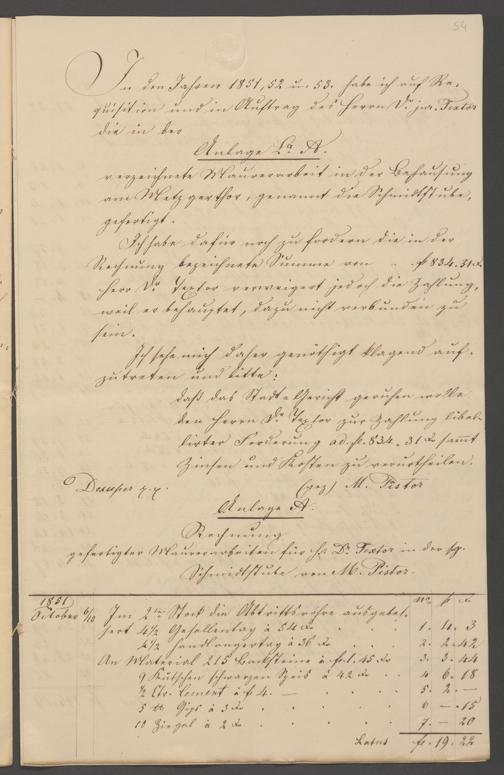 54
In den Jahren 1851, 52 u. 53. habe ich auf Re-
quisition und in Auftrag des Herrn Dr. jur. Textor
die in der
Anlage La A.
verzeichnete Maurerarbeit in der Behausung
am Metzgerthor, genannt die Schmidtstube,
gefertigt.
Ich habe dafür noch zu fordern die in der
Rechnung bezeichnete Summe von f 834. 31 x
Herr Dr. Textor verweigert jedoch die Zahlung,
weil er behauptet, dazu nicht verbunden zu
sein.
Ich sehe mich daher genöthigt klagend auf-
zutreten und bitte:
daß das Stadt Gericht geruhen wolle
den Herrn Dr. Textor zur Zahlung libel-
lirter Forderung ad fl. 834. 31 x samt
Zinsen und Kosten zu verurtheilen.
Desuper p. p.
(gez) M. Pistor
Anlage A.
Rechnung
gefertigter Maurerarbeiten für H. Dr. Textor in der sg.
Schmidtstube von M. Pistor.
1851
No. fl. x
October 6/10 Im 2ten Stock die Abtrittsröhre ausgebes-
sert 4 1/2 Gesellentag à 54 x 1. 4. 3
4 1/2 Handlangertag à 36 x 2. 2. 42
An Material 215 Backsteine à fl. 1. 45 x 3. 3. 44
9 Bütschen schwarzen Speis à 42 x 4 6. 18
1/2 Ctr. Cement à f 4. — 5. 2. —
5 lb Gips à 3 x 6 — . 15
10 Ziegel à 2 x 7. — 20
Latus fl. 19. 22